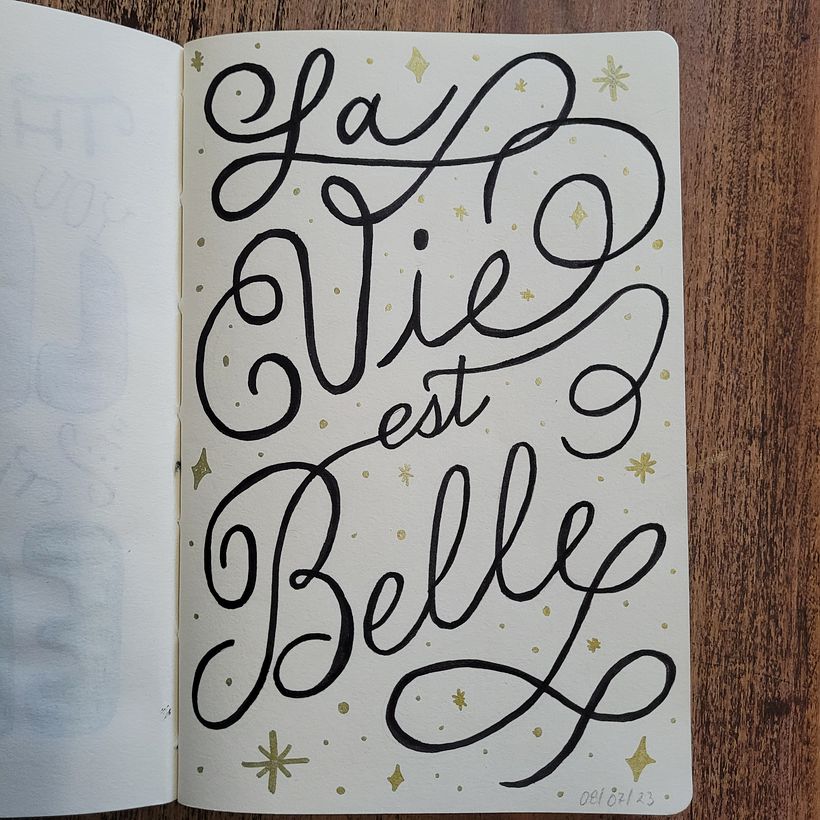 La
Vie
est
Belle
08/07/23